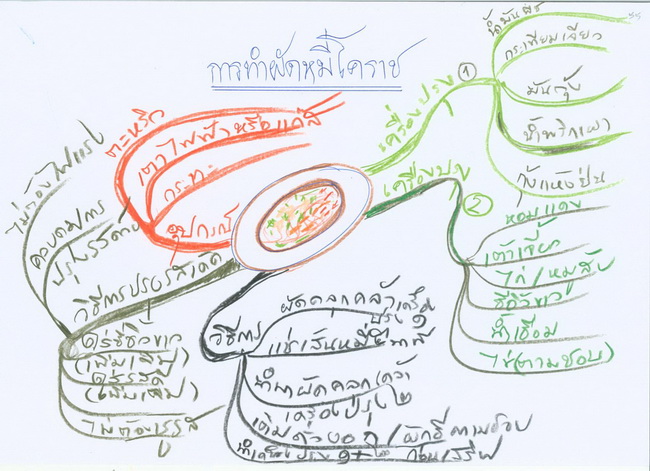 การทำผัดหมี่โคราช
เครื่องปรุง ①
น้ำมันพืช
กระเทียมเจียว
มันกุ้ง
น้ำพริกเผา
กุ้งแห้งป่น
เครื่องปรุง
②
หอมแดง
เต้าเจี้ยว
ไก่/หมูสับ
ซีอิ๊วขาว
น้ำเชื่อม
ไข่(ตามชอบ)
อุปกรณ์
ตะหลิว
เตาไฟฟ้าหรือแก๊ส
กระทะ
วิธีการปรุงรสเด็ด
ไม่ต้องไฟแรง
ควบคุมการ
ปรุงรสด้วย
(เพิ่มเค็ม)
วิธีการ
ผัดคลุกคล้าเครื่อง
ปรุง ๑
แช่เส้นหมี่
นำมาผัดคลุกเคล้า
เครื่องปรุง ๒
เติมถั่วงอก/ผักชีตามชอบ
ก่อนเสิร์ฟ